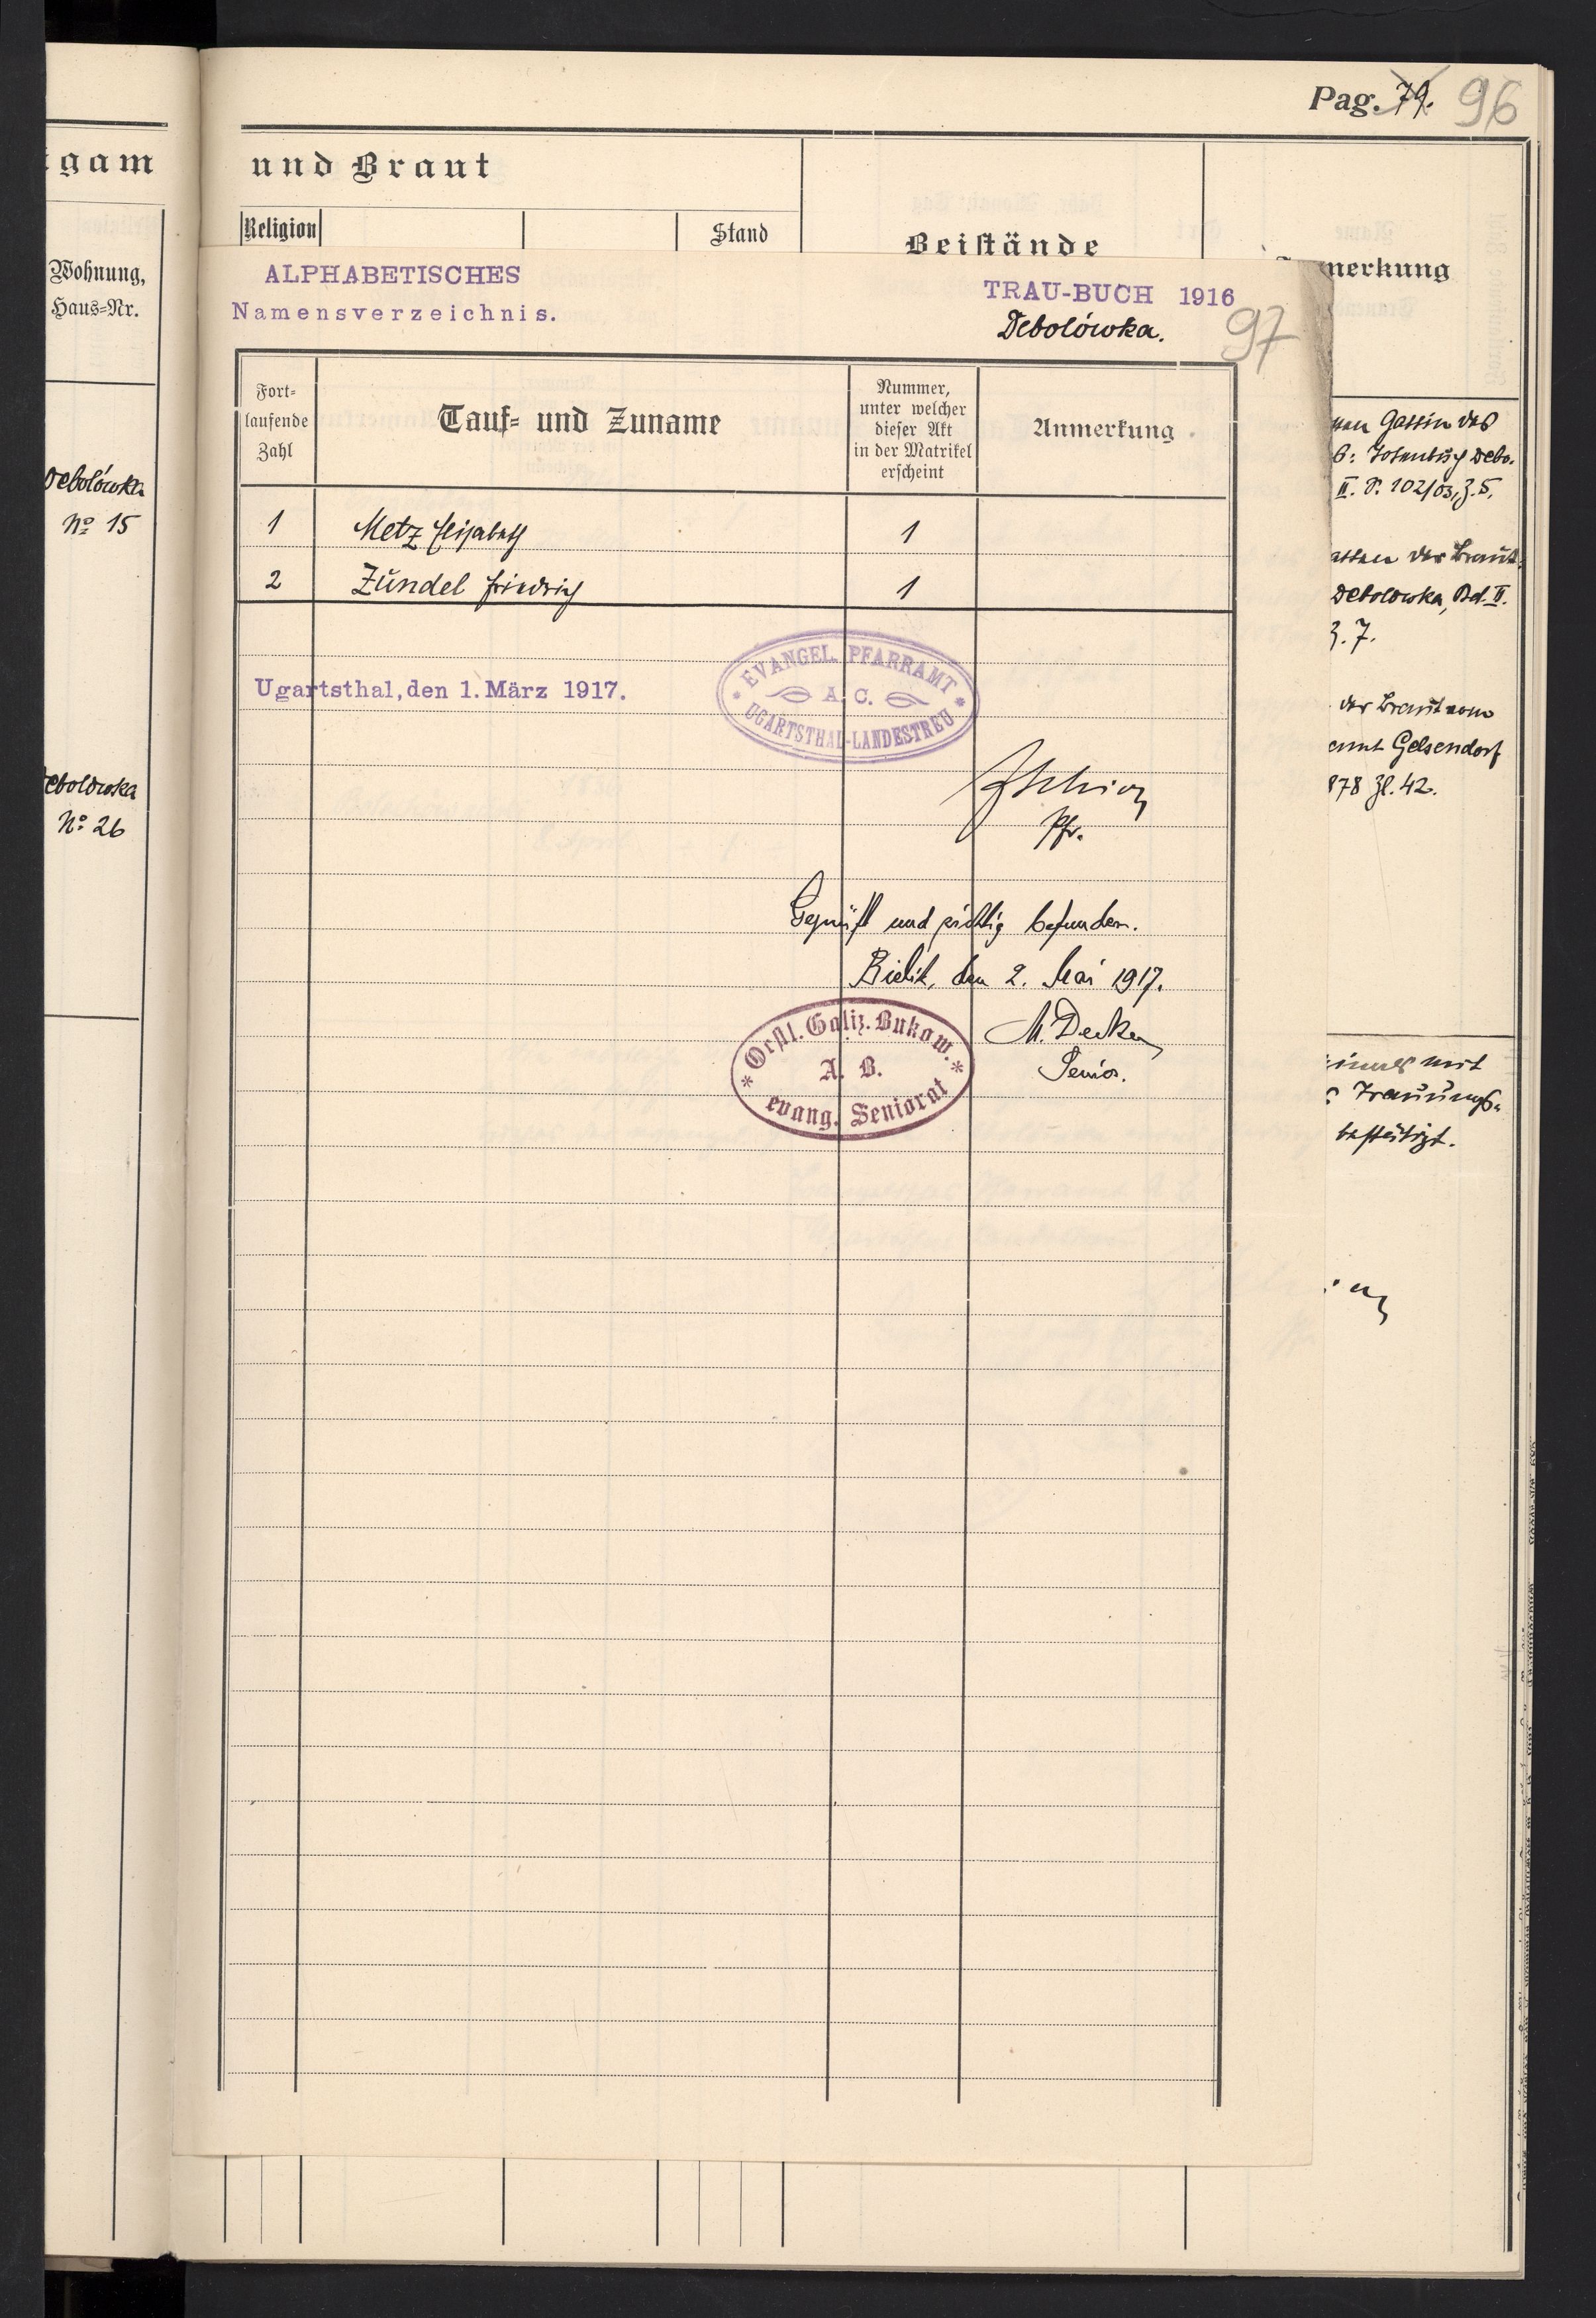 Pag. 79. 96
gam
und Braut
Religion
Stand
Beistände
merkung
Wohnung,
Haus=Nr.
Debolówka
No 15
ebolówka
No 26
ALPHABETISCHES
Namensverzeichnis.
TRAU-BUCH 1916
Debolówka.
97
Fort=
laufende
Zahl
Tauf= und Zuname
Nummer,
unter welcher
dieser Akt
in der Matrikel
erscheint
Anmerkung
1 Metz Elisabeth 1
2 Zündel Friedrich 1
Ugartsthal, den 1. März 1917.
EVANGEL. PFARRAMT
A. C.
UGARTSTHAL-LANDESTREU
Pfr.
Geprüft und richtig befunden.
Bielitz, den 2. Mai 1917.
M. Decker
Senior.
Oestl. Galiz. Bukow.
A. B.
evang. Seniorat
des
Debo.
II. S. 102/03, Z. 5.
der Braut
Debolowka, Bd. II.
Z. 7.
der Braut vom
amt Gelsendorf
878 Zl. 42.
mit
Trauungs=
bestätigt.